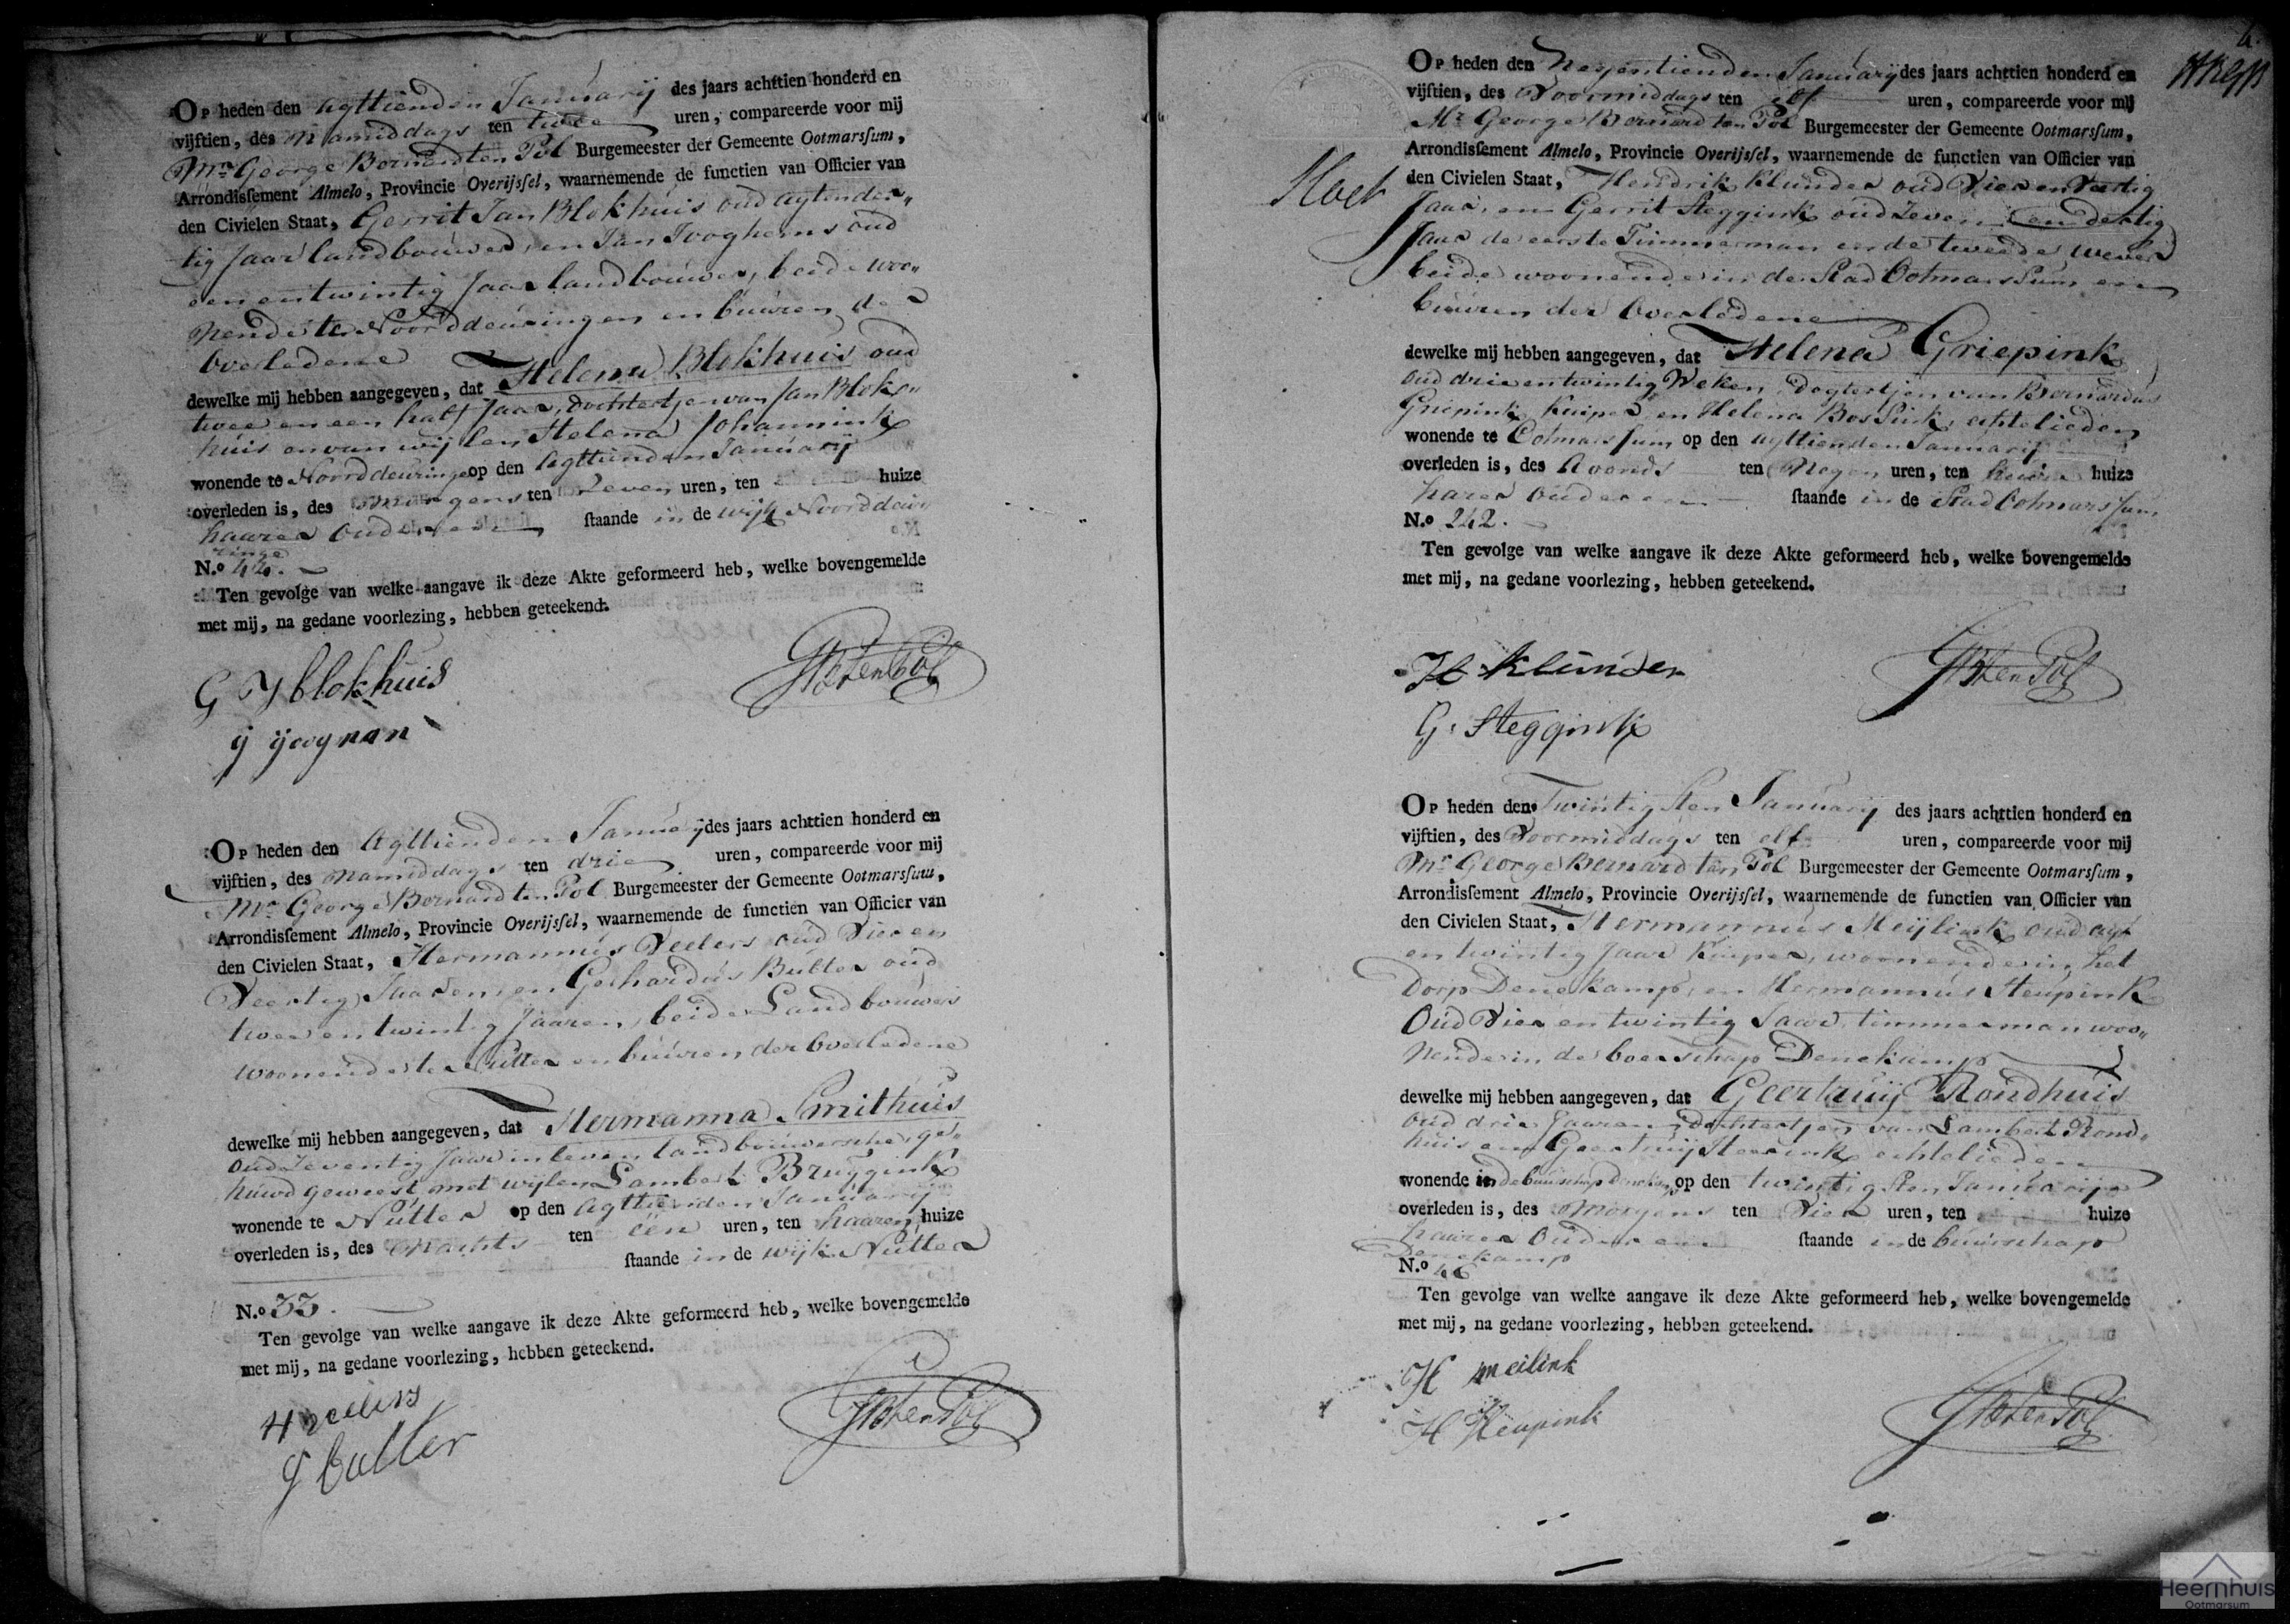 Op heden den agttienden Januarij des jaars achttien honderd en
vijftien, des Namiddags ten twee uren, compareerde voor mij
Mr. George Bernard ten Pol Burgemeester der Gemeente Ootmarsſum,
Arrondisſement Almelo, Provincie Overijsſel, waarnemende de functien van Officier van
den Civielen Staat, Gerrit Jan Blokhuis oud agtender„
tig Jaar landbouwer, en Jan oud
een en twintig Jaar landbouwer, beide woo„
nende te Noorddeuringen en buuren de
Overledene
dewelke mij hebben aangegeven, dat Helena Blokhuis oud
twee en een half Jaar, dochtertjen van Jan Blok„
huis en van wijlen Helena Johannink
wonende te Noorddeuringe op den Agttienden Januarij
overleden is, des Morgens ten Zeven uren, ten huize
haarer Ouderen ſtaande in de wijk Noorddeu„
ringe
N.o 42.
Ten gevolge van welke aangave ik deze Akte geformeerd heb, welke bovengemelde
met mij, na gedane voorlezing, hebben geteekend.
G J blokhuis
GB ten Pol
Op heden den Agttienden Januarij des jaars achttien honderd en
vijftien, des Namiddags ten drie uren, compareerde voor mij
Mr. George Bernard ten Pol Burgemeester der Gemeente Ootmarsſum,
Arrondisſement Almelo, Provincie Overijsſel, waarnemende de functien van Officier van
den Civielen Staat, Hermannus Veelers oud Vier en
Veertig Jaaren, en Gerhardus Butter oud
twee en twintig Jaaren, beide Landbouwers
woonende te Nutter en buuren der Overledene
dewelke mij hebben aangegeven, dat Hermanna Smithuis
oud Zeventig Jaar in leven landbouwersche, ge„
huwd geweest met wijlen Lambert Bruggink
wonende te Nutter op den agttienden Januarij
overleden is, des Nachts ten een uren, ten haaren huize
ſtaande in de wijk Nutter
N.o 33.
Ten gevolge van welke aangave ik deze Akte geformeerd heb, welke bovengemelde
met mij, na gedane voorlezing, hebben geteekend.
H veelers
G butter
GB ten Pol
Op heden den Negentienden Januarij des jaars achttien honderd en
vijftien, des Voormiddags ten elf uren, compareerde voor mij
Mr. George Bernard ten Pol Burgemeester der Gemeente Ootmarsſum,
Arrondisſement Almelo, Provincie Overijsſel, waarnemende de functien van Officier van
den Civielen Staat, Hendrik Klunder oud Vier en Veertig
Jaar, en Gerrit Steggink oud Zeven en dertig
Jaar de eerste Timmerman en de tweede wever
beide woonende in de Stad Ootmarssum en
buuren der Overledene
dewelke mij hebben aangegeven, dat Helena Griepink
oud drie en twintig Weken, dogtertjen van Bernardus
Griepink Kuiper en Helena Bossink, echtelieden
wonende te Ootmarssum op den agttienden Januarij
overleden is, des Avonds ten Negen uren, ten huize
harer Ouderen ſtaande in de Stad Ootmarssum
N.o 242.
Ten gevolge van welke aangave ik deze Akte geformeerd heb, welke bovengemelde
met mij, na gedane voorlezing, hebben geteekend.
H Klunder
GB ten Pol
G. Steggink
Op heden den Twintigsten Januarij des jaars achttien honderd en
vijftien, des Voormiddags ten elf uren, compareerde voor mij
Mr. George Bernard ten Pol Burgemeester der Gemeente Ootmarsſum,
Arrondisſement Almelo, Provincie Overijsſel, waarnemende de functien van Officier van
den Civielen Staat, Hermannus Meijlink oud agt
en twintig Jaar Kuiper, woonende in het
Dorp Denekamp, en Hermannus Heupink
Oud Vier en twintig Jaar timmerman woo„
nende in de boerschap Denekamp
dewelke mij hebben aangegeven, dat Geertruij Rondhuis
oud drie Jaaren, Dochtertjen van Lambert Rond„
huis en Geertruij echtelieden
wonende in de buurschap Denekamp op den twintigsten Januarij
overleden is, des Morgens ten Vier uren, ten huize
haarer Ouderen ſtaande in de buurschap
Denekamp
N.o 46
Ten gevolge van welke aangave ik deze Akte geformeerd heb, welke bovengemelde
met mij, na gedane voorlezing, hebben geteekend.
H meilink
H Heupink
GB ten Pol
Heernhuis
Ootmarsum